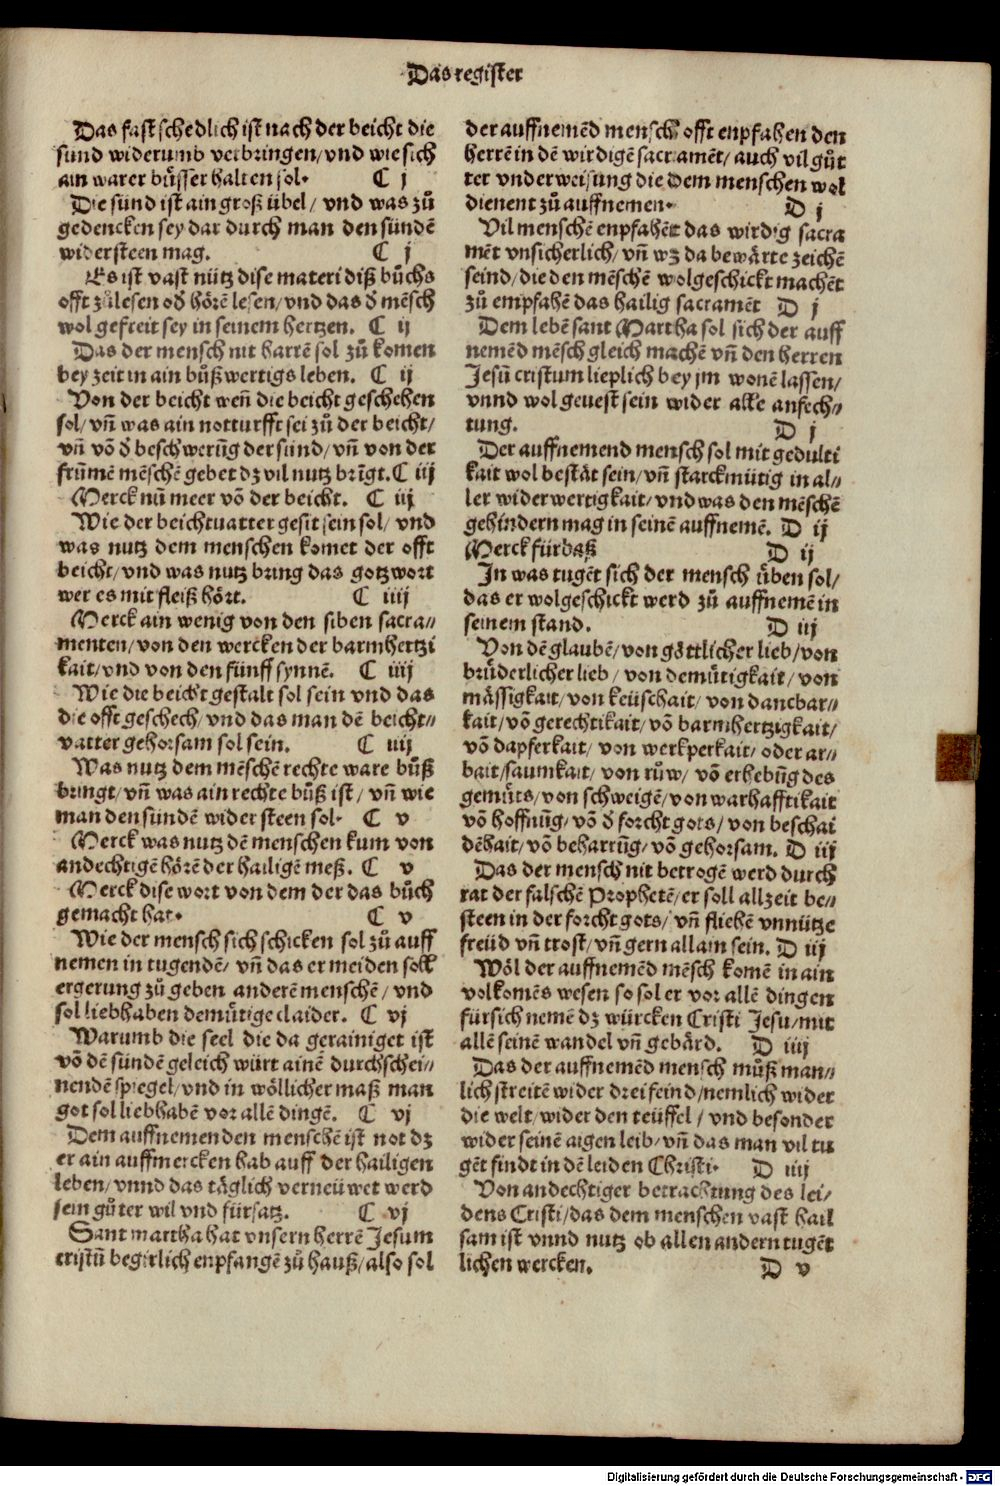 Das register
Das fast schedlich ist nach der beicht die
sünd widerumb verbringen/vnd wie sich
ain warer bu̇sser halten sol· C j
Die sünd ist ain groß übel/ vnd was zů
gedencken sey dar durch man den sündē
widersteen mag. C j
Es ist vast nütz dise materi diß bůchs
offt zů lesen od̄ hörē lesen/vnd das d̄ mēsch
wol gefreit sey in seinem hertzen. C ij
Das der mensch nit harrē sol zů komen
bey zeit in ain bůßwertigs leben. C ij
Von der beicht wen̄ die beicht geschehen
sol/vn̄ was ain notturfft sei zů der beicht/
vn̄ vō d̄ beschwerūg der sünd/vn̄ von der
frūmē mēschē gebet dz vil nutz brīgt. C iij
Merck nū meer vō der beicht. C iij
Wie der beichtuatter gesit sein sol/ vnd
was nutz dem menschen komet der offt
beicht/vnd was nutz bring das gotzwort
wer es mit fleiß hört. C iiij
Merck ain wenig von den siben sacra⸗
menten/von den wercken der barmhertzi
kait/vnd von den fünff synnē. C iiij
Wie die beicht gestalt sol sein vnd das
die offt geschech/vnd das man dē beicht⸗
vatter gehorsam sol sein. C iiij
Was nutz dem mēschē rechte ware bůß
bringt/vn̄ was ain rechte bůß ist/ vn̄ wie
man den sünden wider steen sol· C v
Merck was nutz dē menschen kum von
andechtigē hörē der hailigē meß. C v
Merck dise wort von dem der das bůch
gemacht hat· C v
Wie der mensch sich schicken sol zů auff
nemen in tugendē/ vn̄ das er meiden soll
ergerung zů geben anderē menschē/ vnd
sol liebhaben demůtige claider. C vj
Warumb die seel die da gerainiget ist
vō dē sündē geleich würt ainē durchschei⸗
nendē spiegel/vnd in wöllicher maß man
got sol liebhabē vor allē dingē. C vj
Dem auffnemenden menschē ist not dz
er ain auffmercken hab auff der hailigen
leben/vnnd das täglich verneüwet werd
sein gůter wil vnd fürsatz. C vj
Sant martha hat vnsern herrē Jesum
cristū begirlich enpfangē zů hauß/also sol
der auffnemēd mensch offt enpfahen den
herrē in dē wirdigē sacramēt/auch vil gůt
ter vnderweisung die dem menschen wol
dienent zů auffnemen· D j
Vil menschē enpfahēt das wirdig sacra
mēt vnsicherlich/vn̄ wz da bewärte zeichē
seind/die den mēschē wolgeschickt machēt
zů empfahē das hailig sacramēt D j
Dem lebē sant Martha sol sich der auff
nemēd mēsch gleich machē vn̄ den herren
Jesū cristum lieplich bey jm wonē lassen/
vnnd wol geuest sein wider alle anfech⸗
tung. D j
Der auffnemend mensch sol mit gedulti
kait wol bestät sein/vn̄ starckmütig in al⸗
ler widerwertigkait/vnd was den mēschē
gehindern mag in seinē auffnemē. D ij
Merck fürbaß D ij
In was tugēt sich der mensch üben sol/
das er wolgeschickt werd zů auffnemē in
seinem stand. D iij
Von dē glaubē/von göttlicher lieb/von
brůderlicher lieb/ von demůtigkait/ von
mässigkait/von keüschait/ von danckbar⸗
kait/vō gerechtikait/vō barmhertzigkait/
vō dapferkait/ von werkperkait/oder ar⸗
bait/saumkait/ von růw/ vō erhebūg des
gemůts/von schweigē/von warhafftikait
vō hoffnūg/vō d̄ forcht gots/ von beschai
dēhait/vō beharrūg/vō gehorsam. D iij
Das der mensch nit betrogē werd durch
rat der falschē Prophetē/er soll allzeit be⸗
steen in der forcht gots/ vn̄ fliehē vnnütze
freüd vn̄ trost/vn̄ gern allain sein. D iij
Wöl der auffnemēd mēsch komē in ain
volkomēs wesen so sol er vor allē dingen
fürsich nemē dz würcken Cristi Jesu/mit
allē seinē wandel vn̄ gebärd. D iiij
Das der auffnemēd mensch můß man⸗
lich streitē wider drei feind/nemlich wider
die welt/wider den teüffel/ vnd besonder
wider seinē aigen leib/vn̄ das man vil tu
gēt findt in dē leiden Christi· D iiij
Von andechtiger betrachtung des lei⸗
dens Cristi/das dem menschen vast hail
sam ist vnnd nutz ob allen andern tugēt
lichen wercken. D v
Digitalisierung gefördert durch die Deutsche Forschungsgemeinschaft - DFG